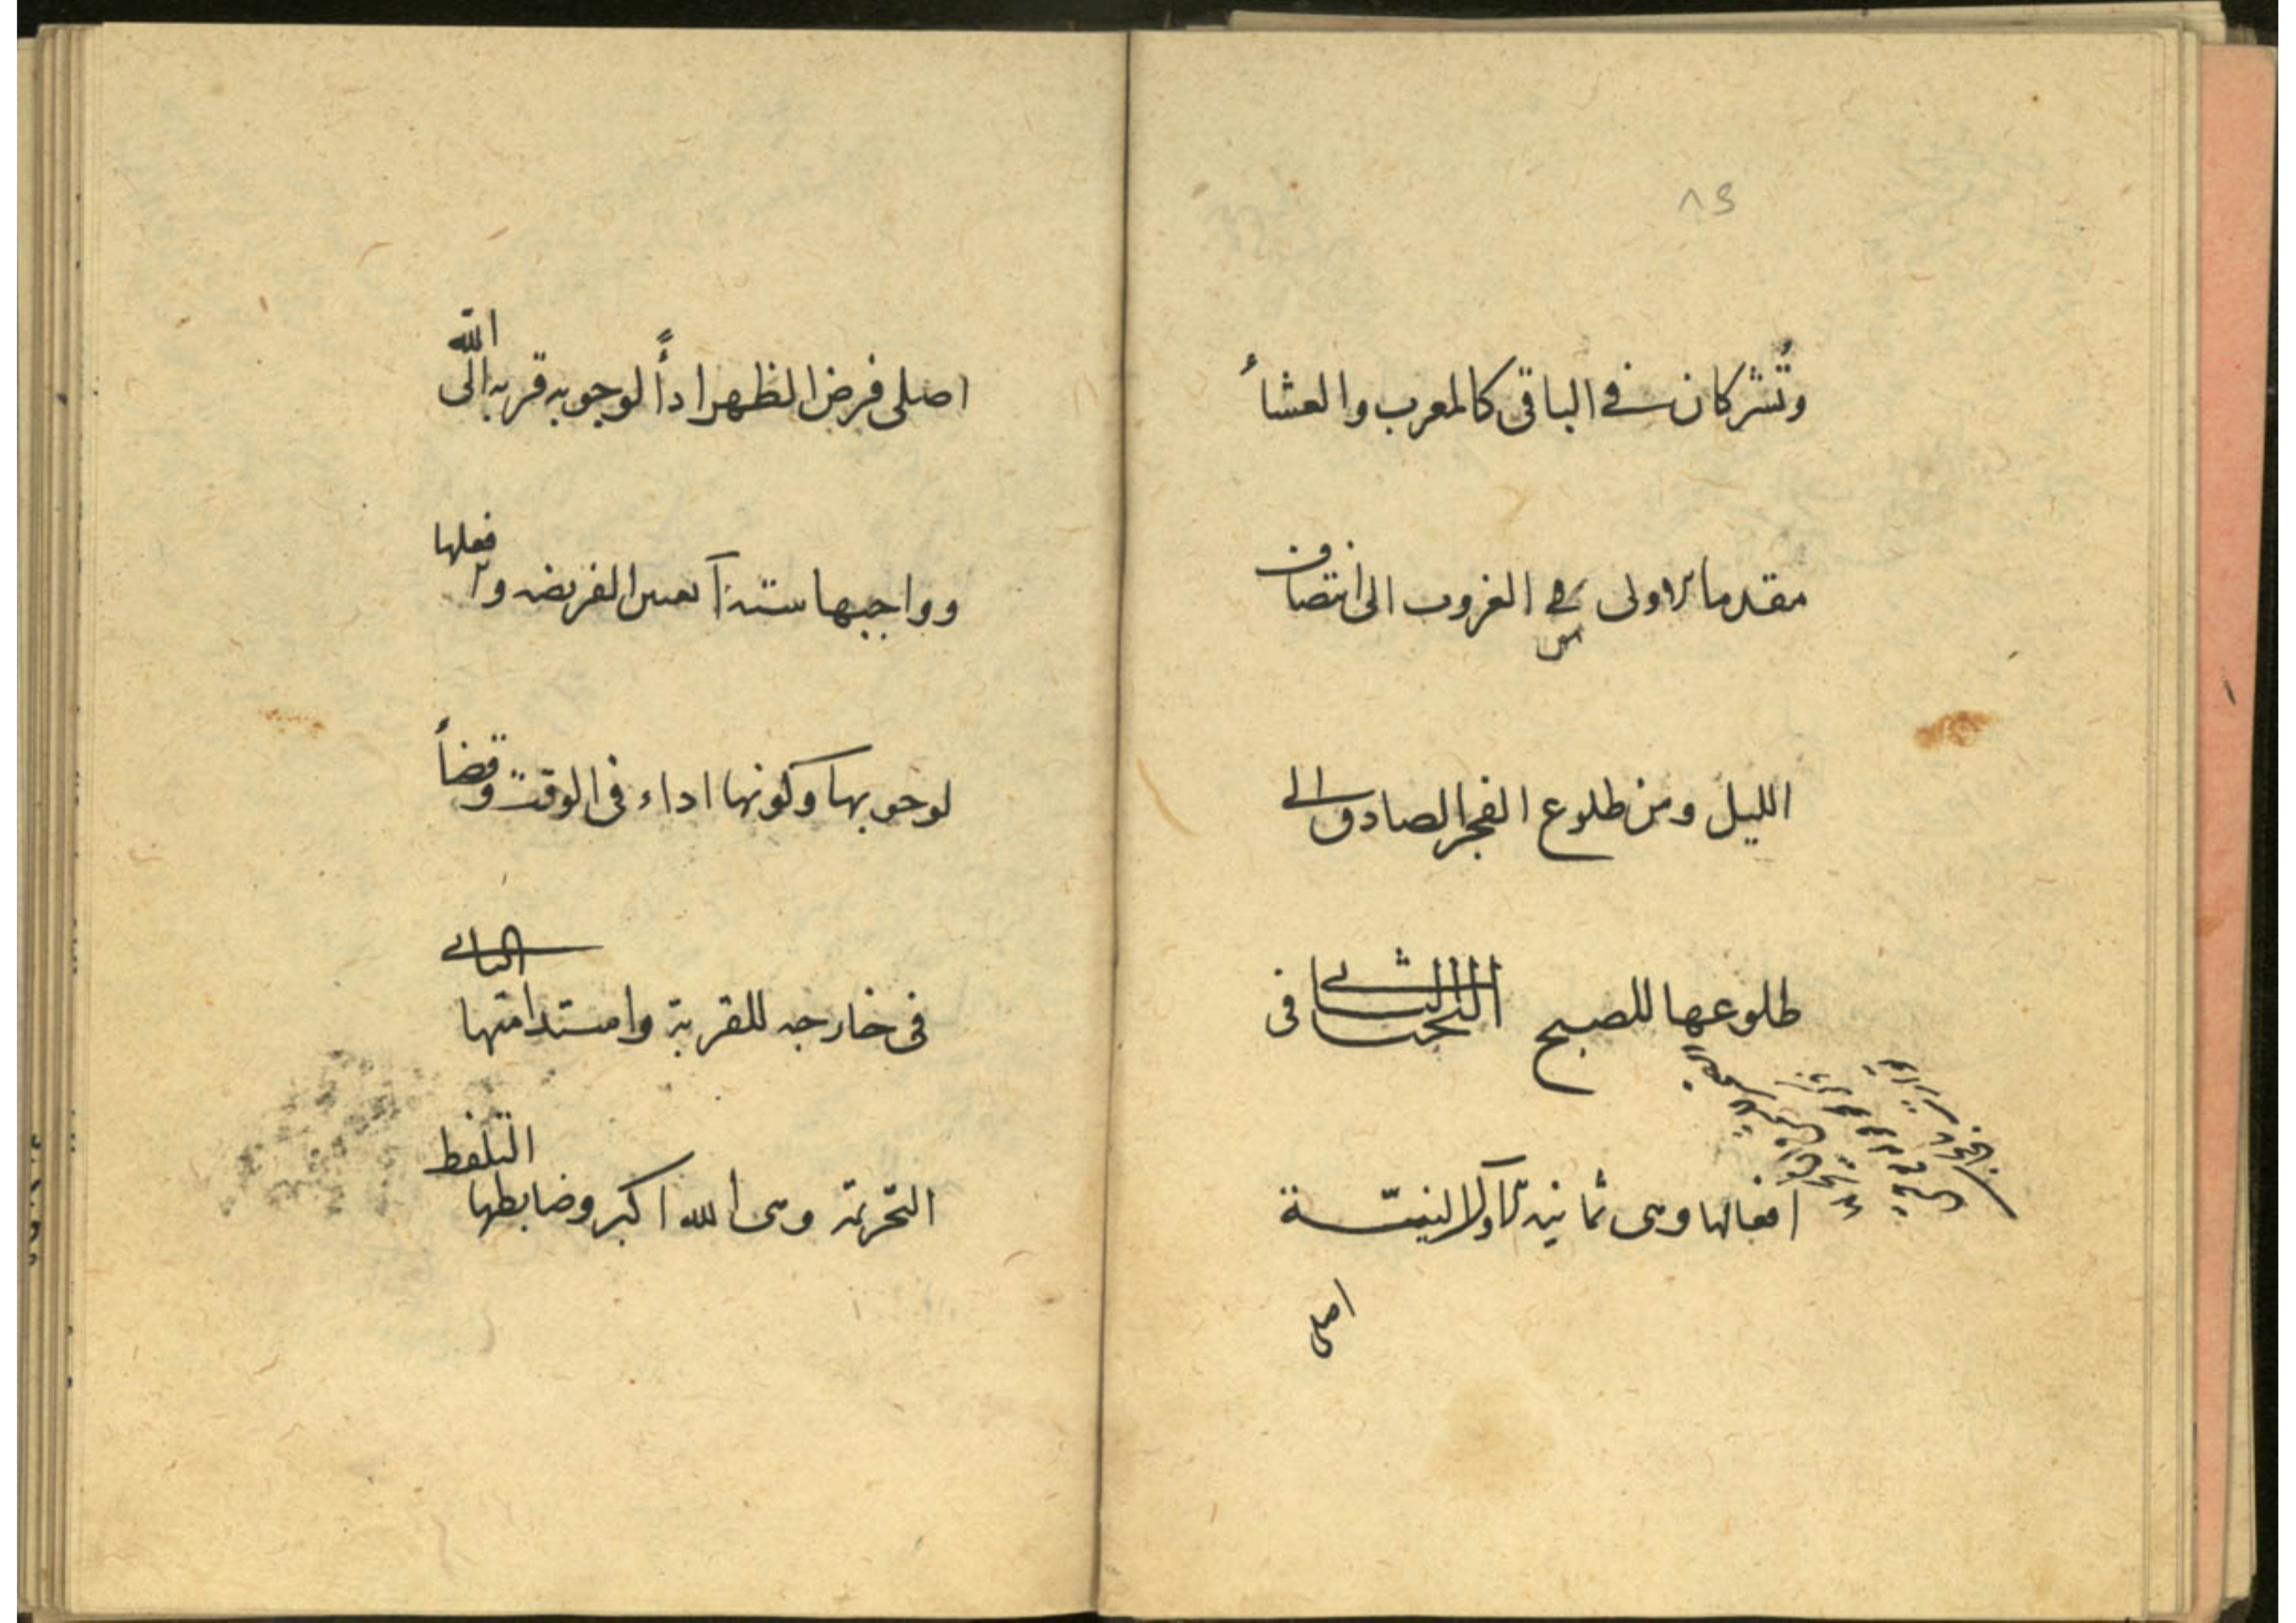 وتشتركان في الباقي كالمغرب والعشاأ
مقدما للاولى في الغروب الى انتصاف
الليل ومن طلوع الفجر الصادق الى
طلوعها للصبح البحث الثاني في
افعالها وهى ثمانية الاول النية
اصلى
اصلى فرض الظهر اداأً لوجوبه قربة الى الله
وواجبها ستة آ تعيين الفريضه و٢ فعلها
لوجوبها وكونها اداء فى الوقت وقضاأ
فى خارجه للقربة وامستدامتها الثانى
التحريمة وهى الله اكبر وضابطها التلفظ